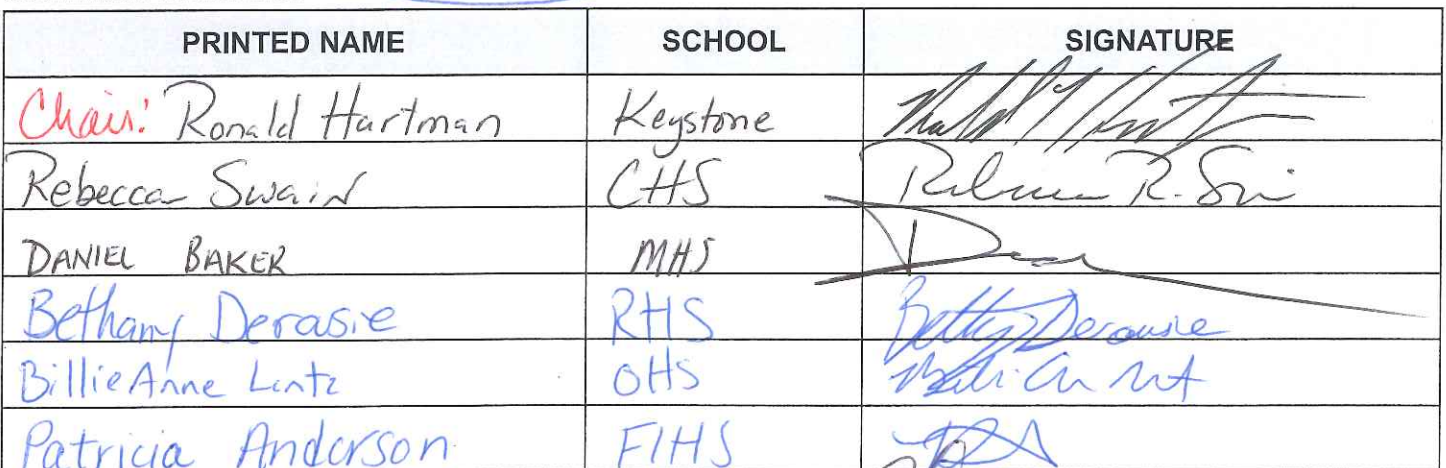 PRINTED NAME SCHOOL SIGNATURE
Chair: Ronald Hartman Keystone
Rebecca Swain CHS Rebecca R. Swain
DANIEL BAKER MHS
Bethany Derasie RHS Bethany Derousie
BillieAnne Lentz OHS
Patricia Anderson FIHS